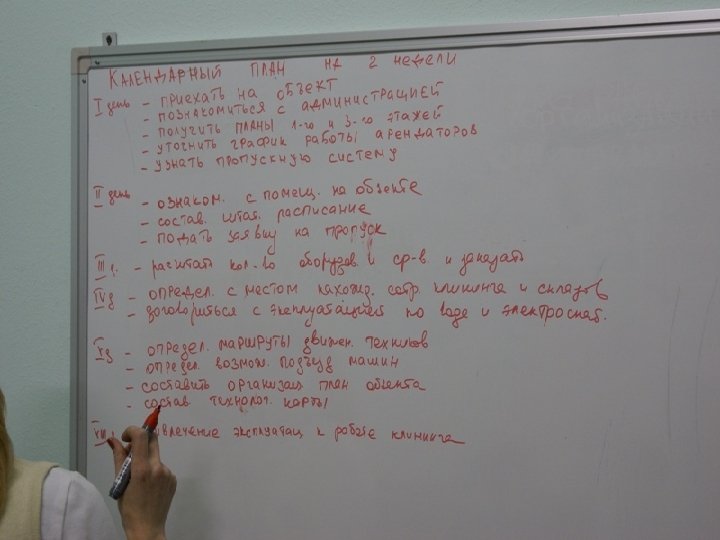 Календарный план на 2 недели
I день - приехать на объект
- познакомиться с администрацией
- получить планы 1-го и 3-го этажей
- уточнить график работы арендаторов
- узнать пропускную систему
II день - ознаком. с помещ. на объекте
- состав. штат. расписание
- подать заявку на пропуск
III д. - расчитать кол-во оборудов. и ср-в и заказать
IV д - определ. с местом нахожд. сотр. клининга и складов
- договориться с эксплуатацией по воде и электроснаб.
V д - определ. маршруты движен. техников
- определ. возмож. подъезд машин
- составить организац план объекта
- состав технолог. карты
влечение эксплуатац к работе клининга